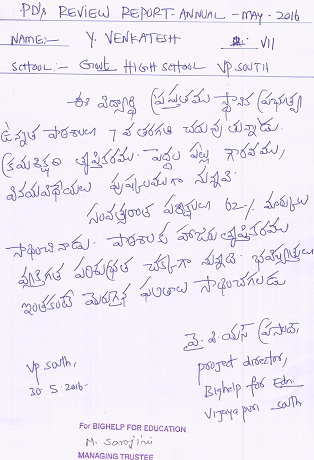 PD's REVIEW REPORT - ANNUAL - MAY - 2016
NAME:- Y. VENKATESH VII
SCHOOL:- Govt HIGH SCHOOL VP SOUTH
ఈ విద్యార్థి ప్రస్తుతము స్థానిక ప్రభుత్వ
ఉన్నత పాఠశాల 7 వ తరగతి చదువుతున్నాడు.
క్రమశిక్షణ తృప్తికరము. పెద్దల పట్ల గౌరవము,
వినయవిధేయలు పుష్కలముగా నున్నవి.
సంవత్సరాంత పరీక్షలు 62% మార్కులు
సాధించినాడు. పాఠశాలకు హాజరు తృప్తికరము
వ్యక్తిగత పరిశుభ్రత చక్కగా నున్నది. భవిష్యత్తులు
ఇంతకంటే మెరుగైన ఫలితాలు సాధించగలడు
వై. వి. యస్ ప్రసాద్,
project director,
Bighelp for Edn.
Vijayapuri south
VP South,
30-5-2016.
For BIGHELP FOR EDUCATION
M. Sarojini
MANAGING TRUSTEE